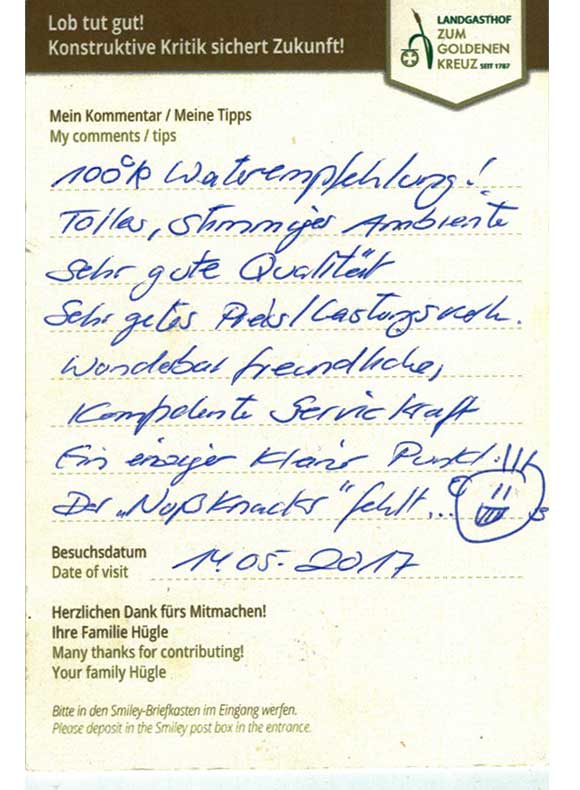 Lob tut gut!
Konstruktive Kritik sichert Zukunft!
LANDGASTHOF
ZUM
GOLDENEN
KREUZ SEIT 1787
Mein Kommentar / Meine Tipps
My comments / tips
100% Weiterempfehlung!
Tolles, stimmiges Ambiente
Sehr gute Qualität
Sehr gutes Preis/Leistungsverh.
Wunderbar freundliche,
Kompetente Servicekraft
Ein einziger kleiner Punkt:!!!
Der „Nußknacker“ fehlt...
Besuchsdatum
Date of visit 14.05.2017
Herzlichen Dank fürs Mitmachen!
Ihre Familie Hügle
Many thanks for contributing!
Your family Hügle
Bitte in den Smiley-Briefkasten im Eingang werfen.
Please deposit in the Smiley post box in the entrance.